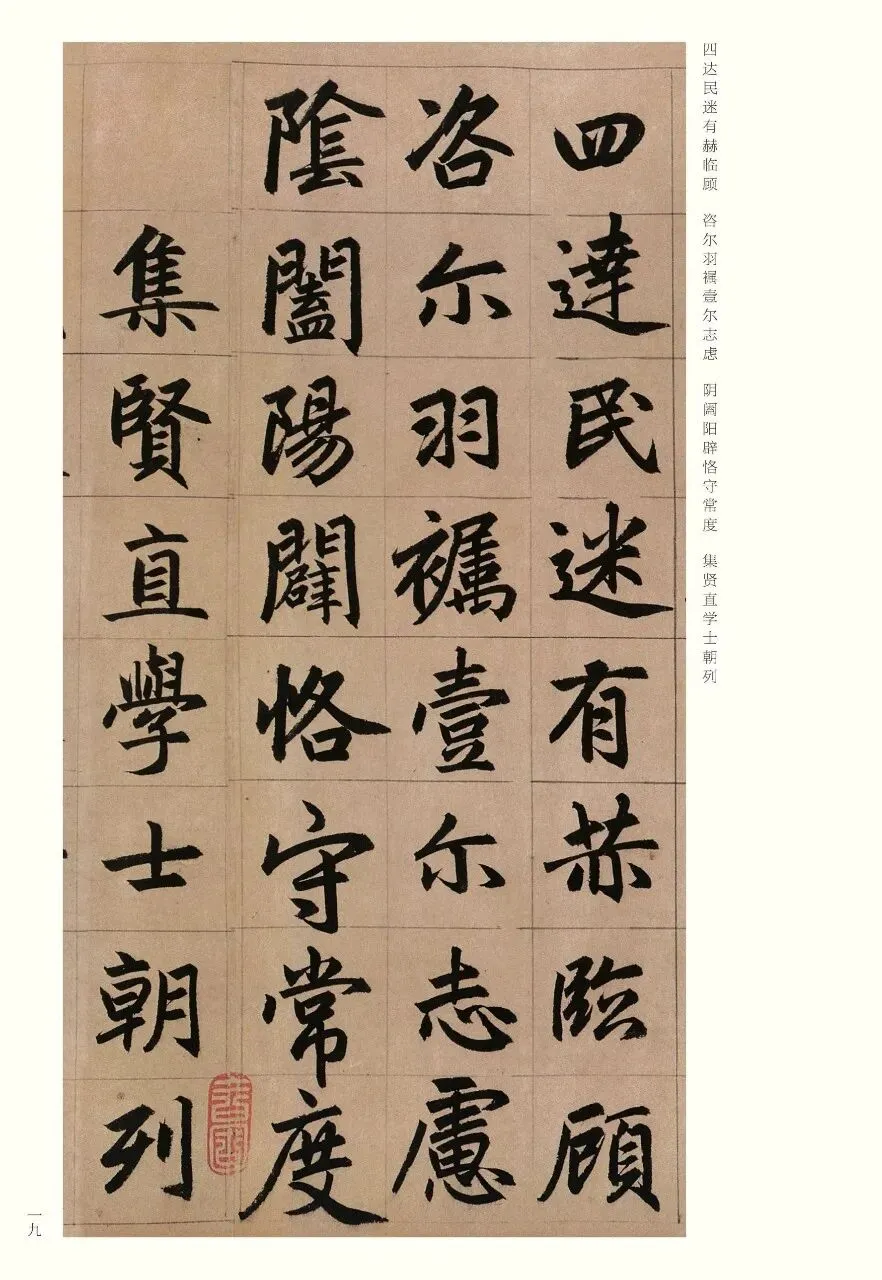 四达民迷有赫临顾　咨尔羽襹壹尔志虑　阴阖阳辟恪守常度　集贤直学士朝列
四達民迷有赫臨顾
咨尔羽襹壹尔志慮
陰闔陽闢恪守常度
集賢直學士朝列
一九